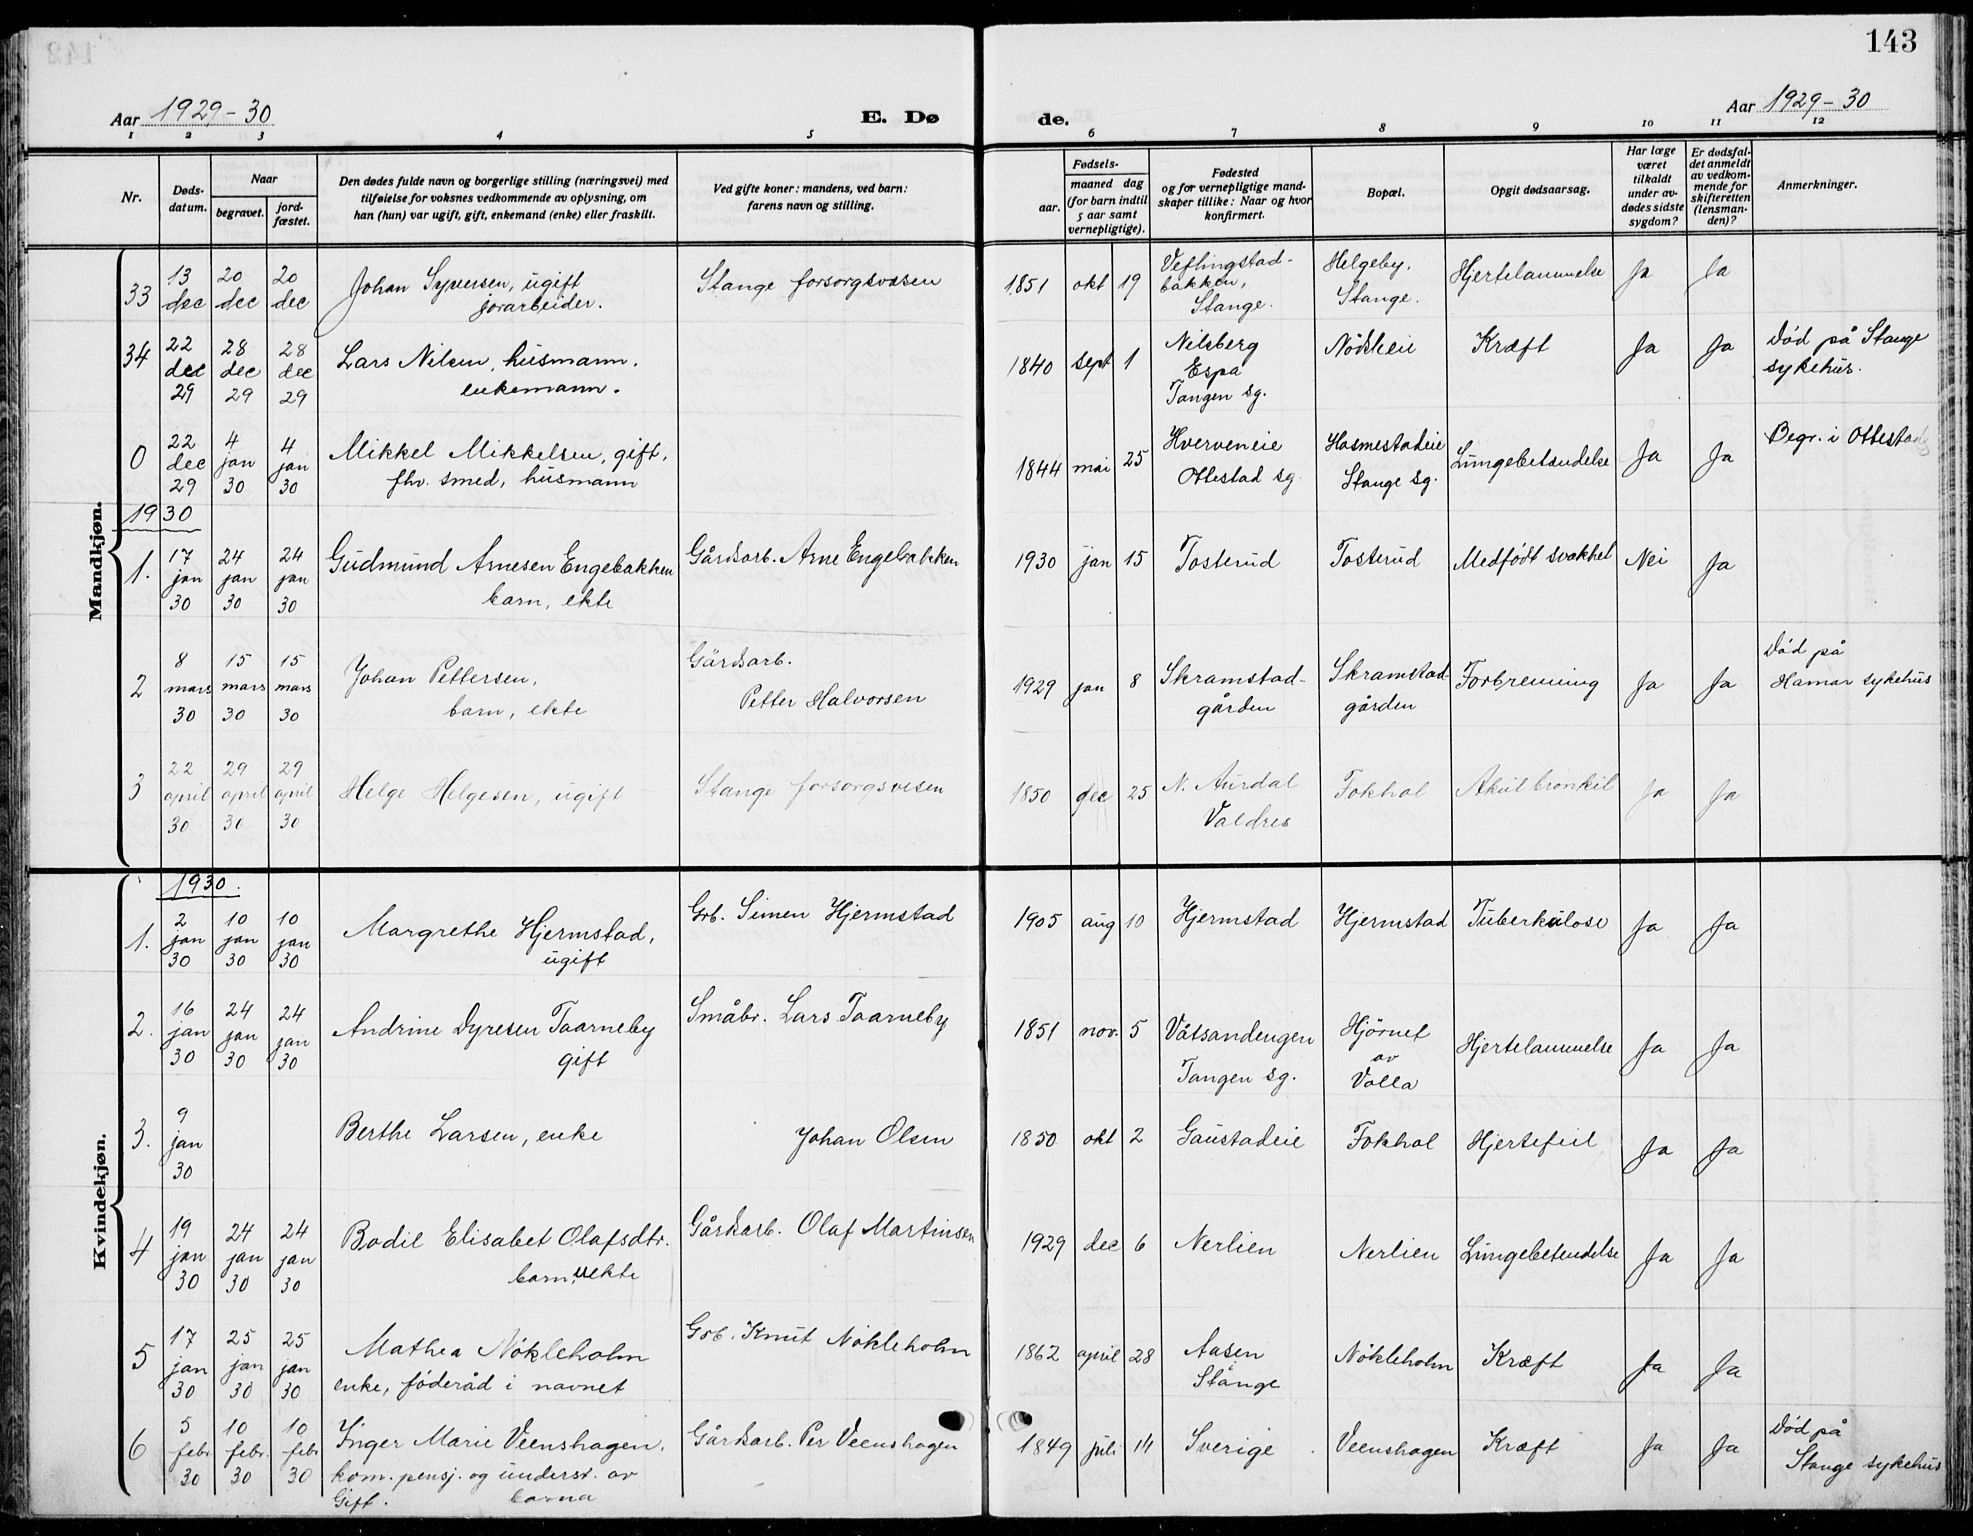 143
Aar 1929-30
E. Dø
de.
Aar 1929-30
1 2 3 4 5 6 7 8 9 10 11 12
Nr.
Døds-
datum.
Naar
begravet.
jord-
fæstet.
Den dødes fulde navn og borgerlige stilling (næringsvei) med
tilføielse for voksnes vedkommende av oplysning, om
han (hun) var ugift, gift, enkemand (enke) eller fraskilt.
Ved gifte koner: mandens, ved barn:
farens navn og stilling.
Fødsels-
aar.
maaned dag
(for barn indtil
5 aar samt
vernepligtige).
Fødested
og for vernepligtige mand-
skaper tillike: Naar og hvor
konfirmert.
Bopæl.
Opgit dødsaarsag.
Har læge
været
tilkaldt
under av-
dødes sidste
sygdom?
Er dødsfal-
det anmeldt
av vedkom-
mende for
skifteretten
(lensman-
den)?
Anmerkninger.
Mandkjøn.
33
13
dec
20
dec
20
dec
Johan Syversen, ugift
jorarbeider.
Stange forsorgsvæsen
1851 okt 19
Veflingstad-
bakken,
Stange.
Helgeby.
Stange.
Hjertelammelse
Ja
Ja
34
22
dec
29
28
dec
29
28
dec
29
Lars Nilsen, husmann.
enkemann.
1840 sept 1
Nilsberg
Espa
Tangen sg.
Nökleie
Kræft
Ja
Ja
Död på Stange
sykehus.
0
22
dec
29
4
jan
30
4
jan
30
Mikkel Mikkelsen, gift,
fhv. smed, husmann
1844 mai 25
Hverveneie
Ottestad sg.
Hosmestadeie
Stange sg.
Lungebetændelse
Ja
Ja
Begr. i Ottestad
1930
1.
17
jan
30
24
jan
30
24
jan
30
Gudmund Arnesen Engebakken
barn, ekte
Gårdsarb. Arne Engebakken
1930 jan 15
Tosterud
Tosterud
Medfödt svakhet
Nei
Ja
2
8
mars
30
15
mars
30
15
mars
30
Johan Pettersen,
barn, ekte
Gårdsarb.
Petter Halvorsen
1929 jan 8
Skramstad-
gården
Skramstad-
gården
Forbrenning
Ja
Ja
Död på
Hamar sykehus
3
22
april
30
29
april
30
29
april
30
Helge Helgesen, ugift
Stange forsorgsvesen
1850 dec 25
N. Aurdal
Valdres
Fokhol
Akut bronkit
Ja
Ja
Kvindekjøn.
1930.
1.
2
jan
30
10
jan
30
10
jan
30
Margrethe Hjermstad,
ugift
Grb. Simen Hjermstad
1905 aug 10
Hjermstad
Hjermstad
Tuberkulose
Ja
Ja
2.
16
jan
30
24
jan
30
24
jan
30
Andrine Dyresen Taarneby
gift
Småbr. Lars Taarneby
1851 nov. 5
Våtsandengen
Tangen sg.
Hjörnet
av
Valla
Hjertelammelse
Ja
Ja
3.
9
jan
30
Berthe Larsen, enke
Johan Olsen
1850 okt 2
Gaustadeie
Fokhol
Hjertefeil
Ja
Ja
4
19
jan
30
24
jan
30
24
jan
30
Bodil Elisabet Olafsdtr.
barn, uekte
Gårdsarb. Olaf Martinsen
1929 dec 6
Nerlien
Nerlien
Lungebetendelse
Ja
Ja
5
17
jan
30
25
jan
30
25
jan
30
Mathea Nökleholm
enke, föderåd i navnet
Grb. Knut Nökleholm
1862 april 28
Aasen
Stange
Nökleholm
Kræft
Ja
Ja
6
5
febr
30
10
febr.
30
10
febr
30
Inger Marie Veenshagen,
kom. pensj. og underst. av
Gift. barna
Gårdsarb. Per Veenshagen
1849 juli 14
Sverige
Veenshagen
Kræft
Ja
Ja
Död på
Stange sykehus